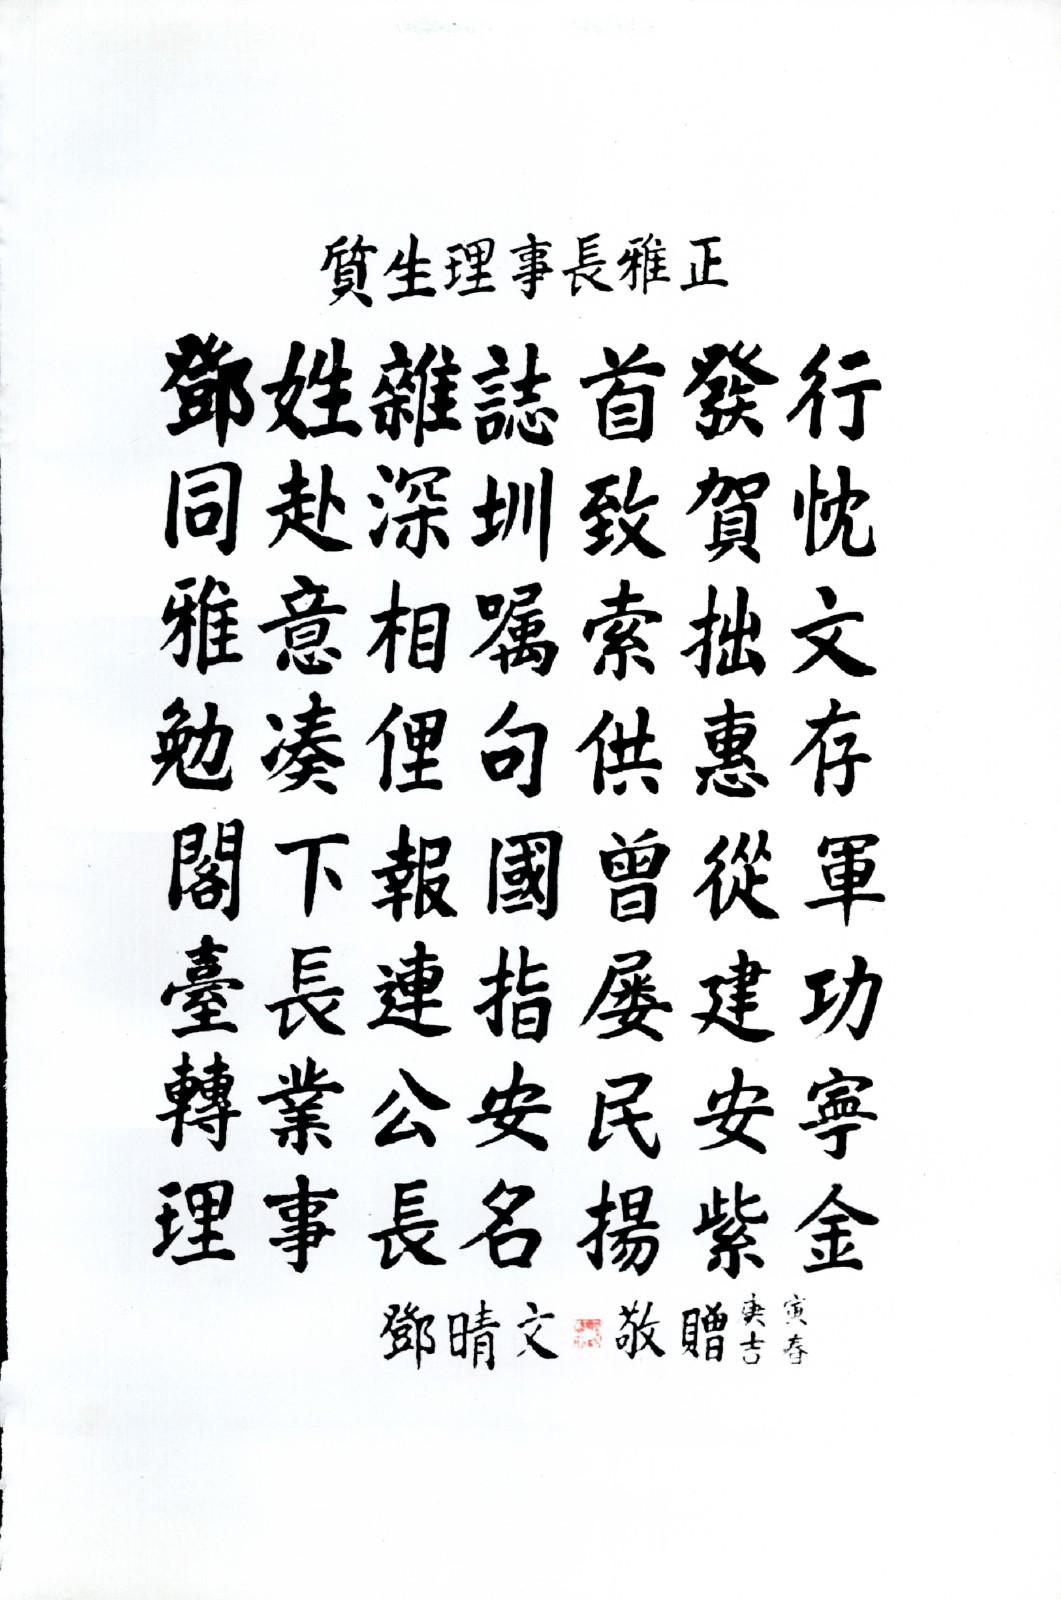 質生理事長雅正
鄧姓雜誌首發行
同赴深圳致賀忱
雅意相嘱索拙文
勉凑俚句供惠存
閣下報國曾從軍
臺長連指屢建功
轉業公安民安寧
理事長名揚紫金
鄧晴文敬贈
庚寅
吉春